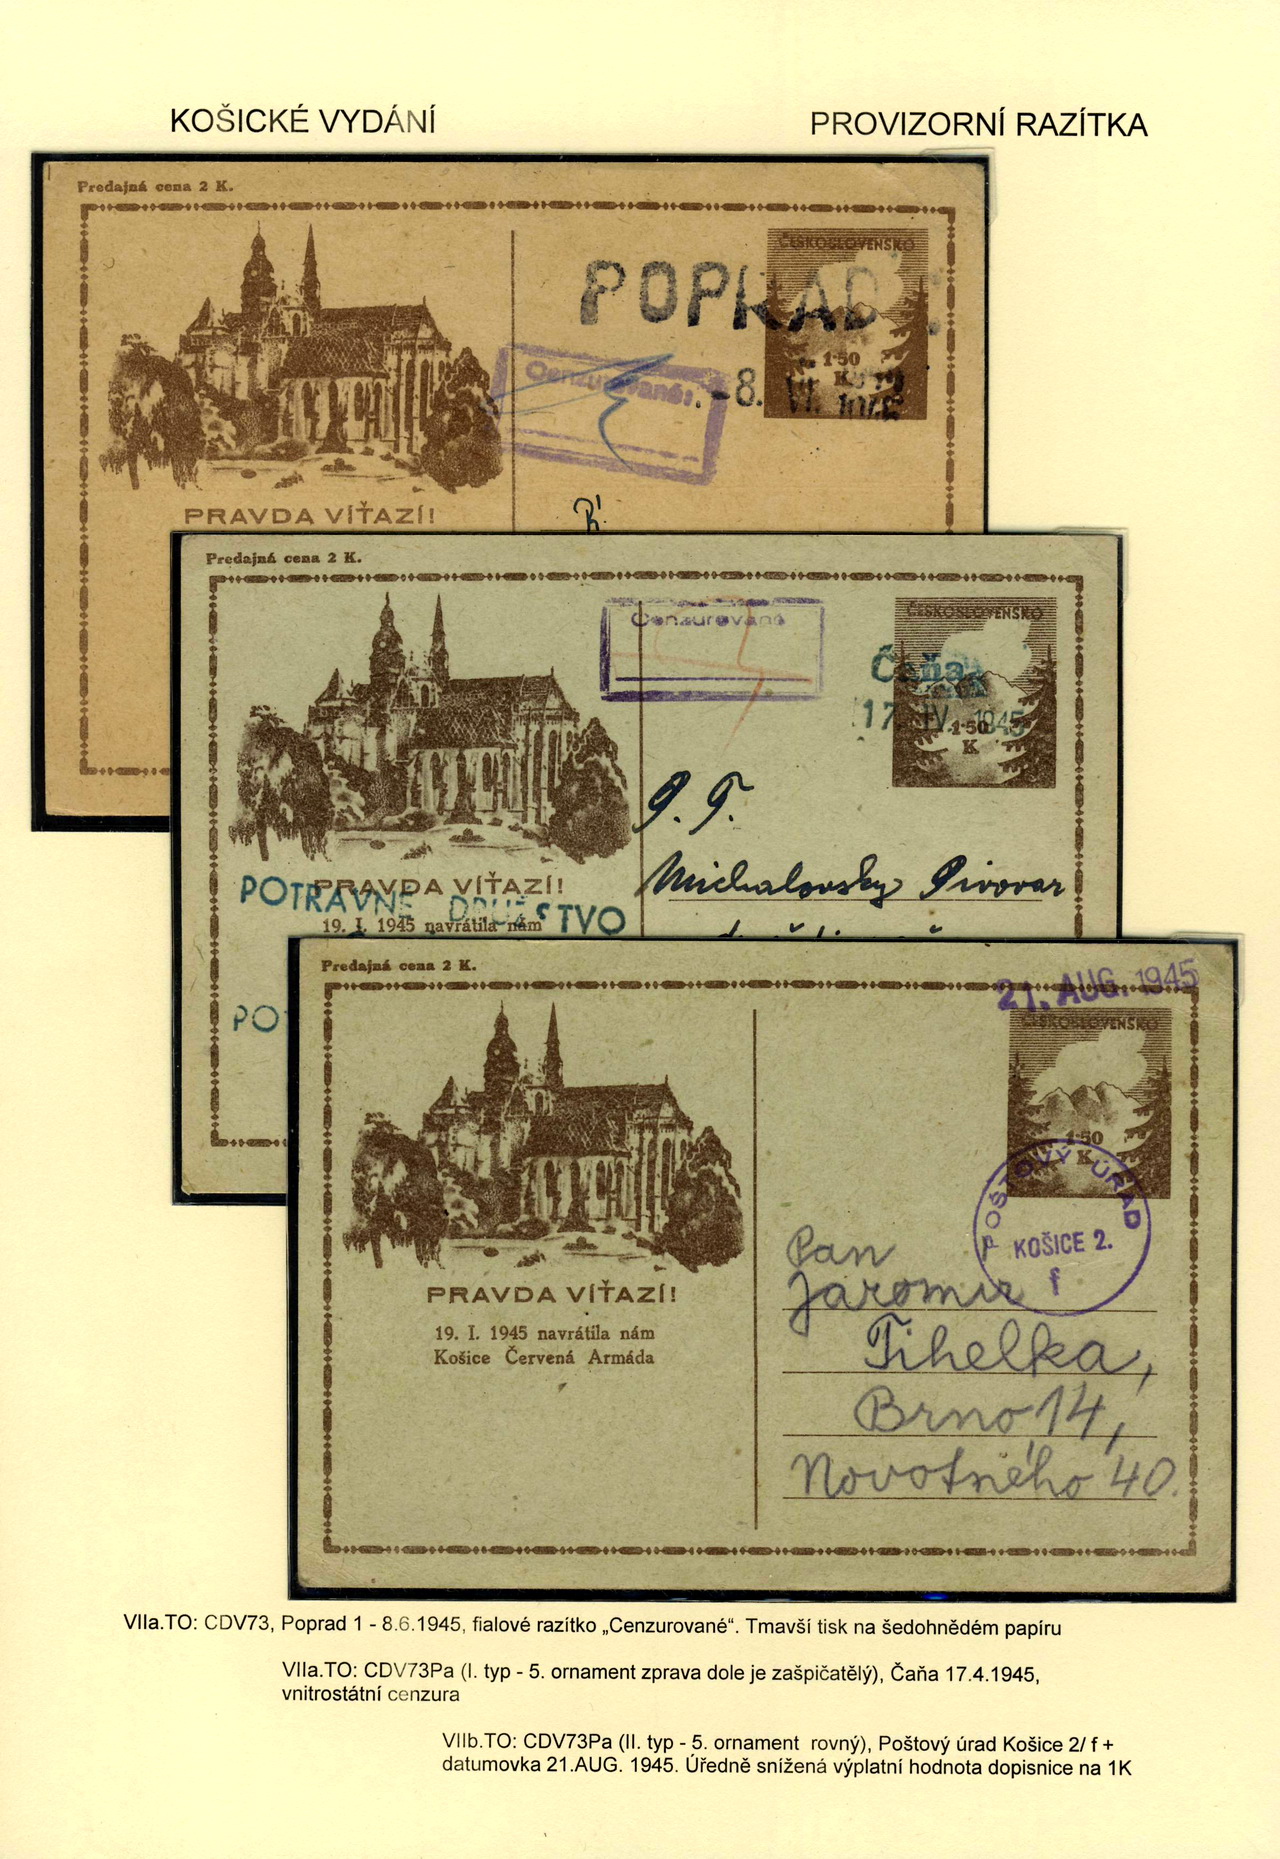 KOŠICKÉ VYDÁNÍ
PROVIZORNÍ RAZÍTKA
Predajná cena 2 K.
ČESKOSLOVENSKO
POPRAD
1·50
K
Cenzurované:
-8. VI. 1945
PRAVDA VÍŤAZÍ!
Predajná cena 2 K.
ČESKOSLOVENSKO
Cenzurované
Čaňa
17. IV. 1945
1·50
K
P. T.
Michalovsky Pivovar
PRAVDA VÍŤAZÍ!
POTRAVNÉ DRUŽSTVO
19. I. 1945 navrátila nám
PO
Predajná cena 2 K.
21. AUG. 1945
ČESKOSLOVENSKO
1·50
K
POŠTOVÝ ÚRAD
KOŠICE 2.
f
PRAVDA VÍŤAZÍ!
19. I. 1945 navrátila nám
Košice Červená Armáda
Pan
Jaromir
Tihelka,
Brno 14,
Novotného 40.
VIIa.TO: CDV73, Poprad 1 - 8.6.1945, fialové razítko „Cenzurované“. Tmavší tisk na šedohnědém papíru
VIIa.TO: CDV73Pa (I. typ - 5. ornament zprava dole je zašpičatělý), Čaňa 17.4.1945,
vnitrostátní cenzura
VIIb.TO: CDV73Pa (II. typ - 5. ornament rovný), Poštový úrad Košice 2/ f +
datumovka 21.AUG. 1945. Úředně snížená výplatní hodnota dopisnice na 1K